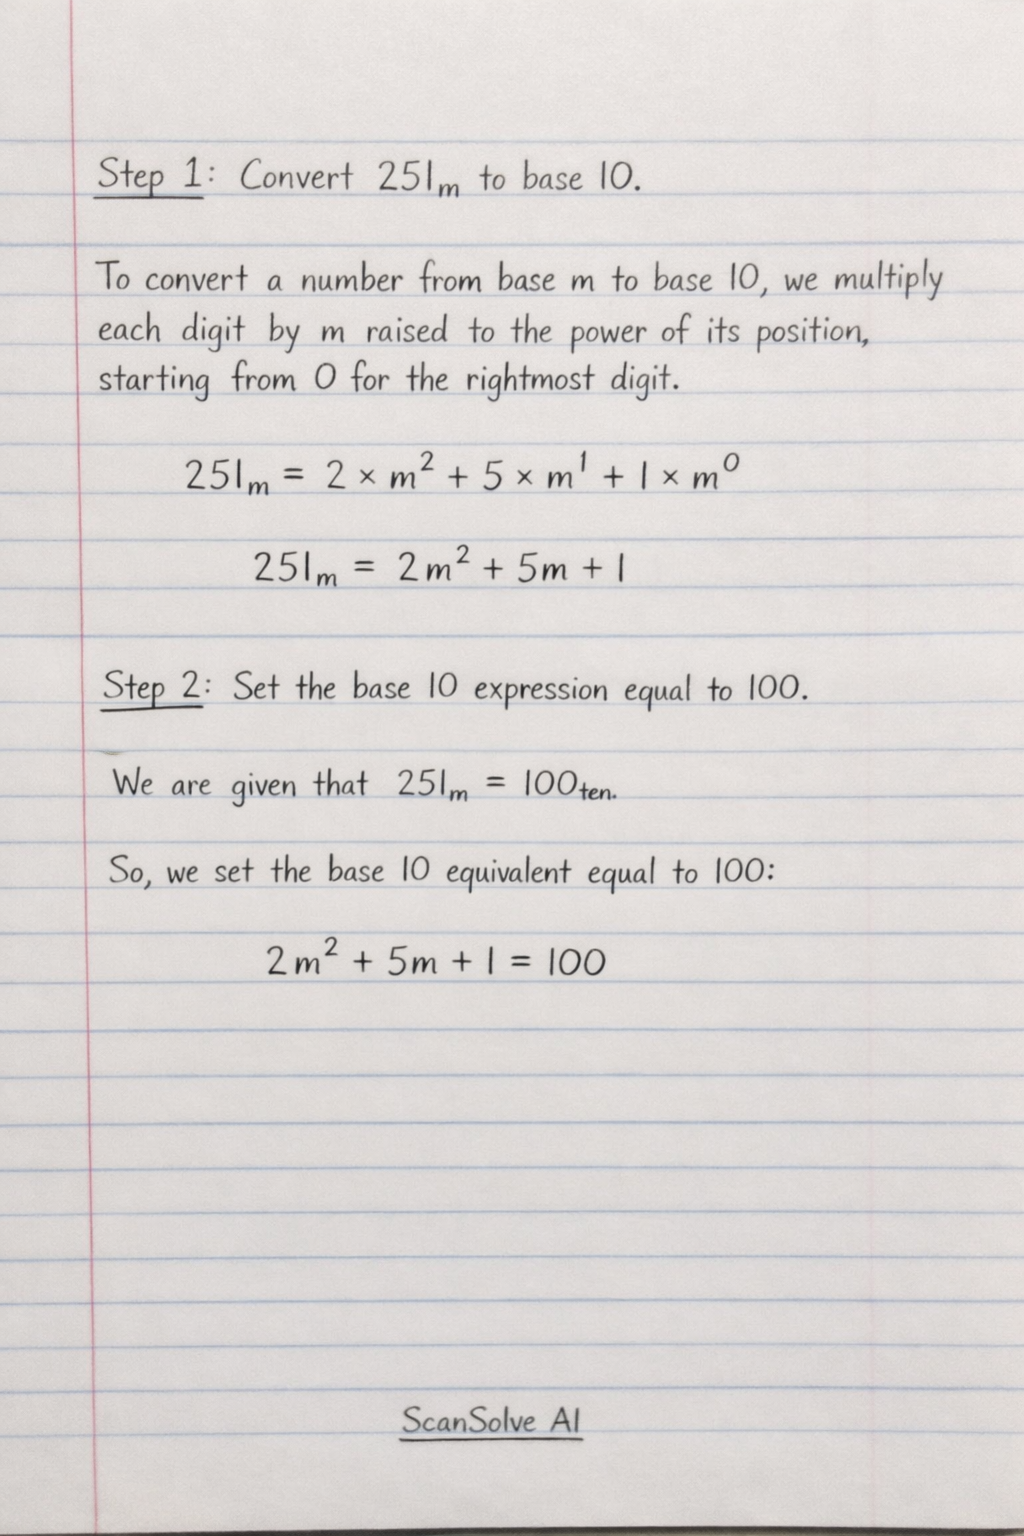 Step 1: Convert 251ₘ to base 10.
To convert a number from base m to base 10, we multiply
each digit by m raised to the power of its position,
starting from 0 for the rightmost digit.
251ₘ = 2 × m² + 5 × m¹ + 1 × m⁰
251ₘ = 2m² + 5m + 1
Step 2: Set the base 10 expression equal to 100.
We are given that 251ₘ = 100ten.
So, we set the base 10 equivalent equal to 100:
2m² + 5m + 1 = 100
ScanSolve AI